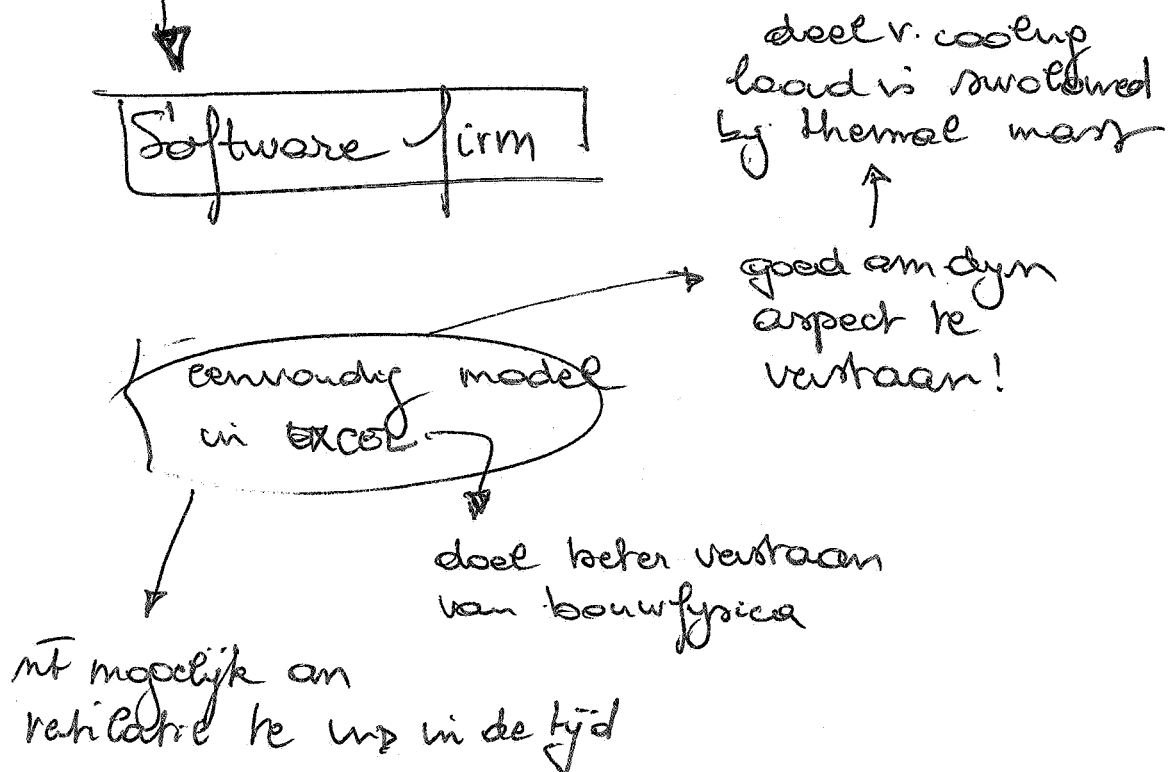 Software firm
deel v. cooling
load is swolowed
by thermal mass
goed om dyn
aspect te
verstaan!
eenvoudig model
in EXCEL
doel beter verstaan
van bouwfysica
nt mogelijk om
te in de tijd